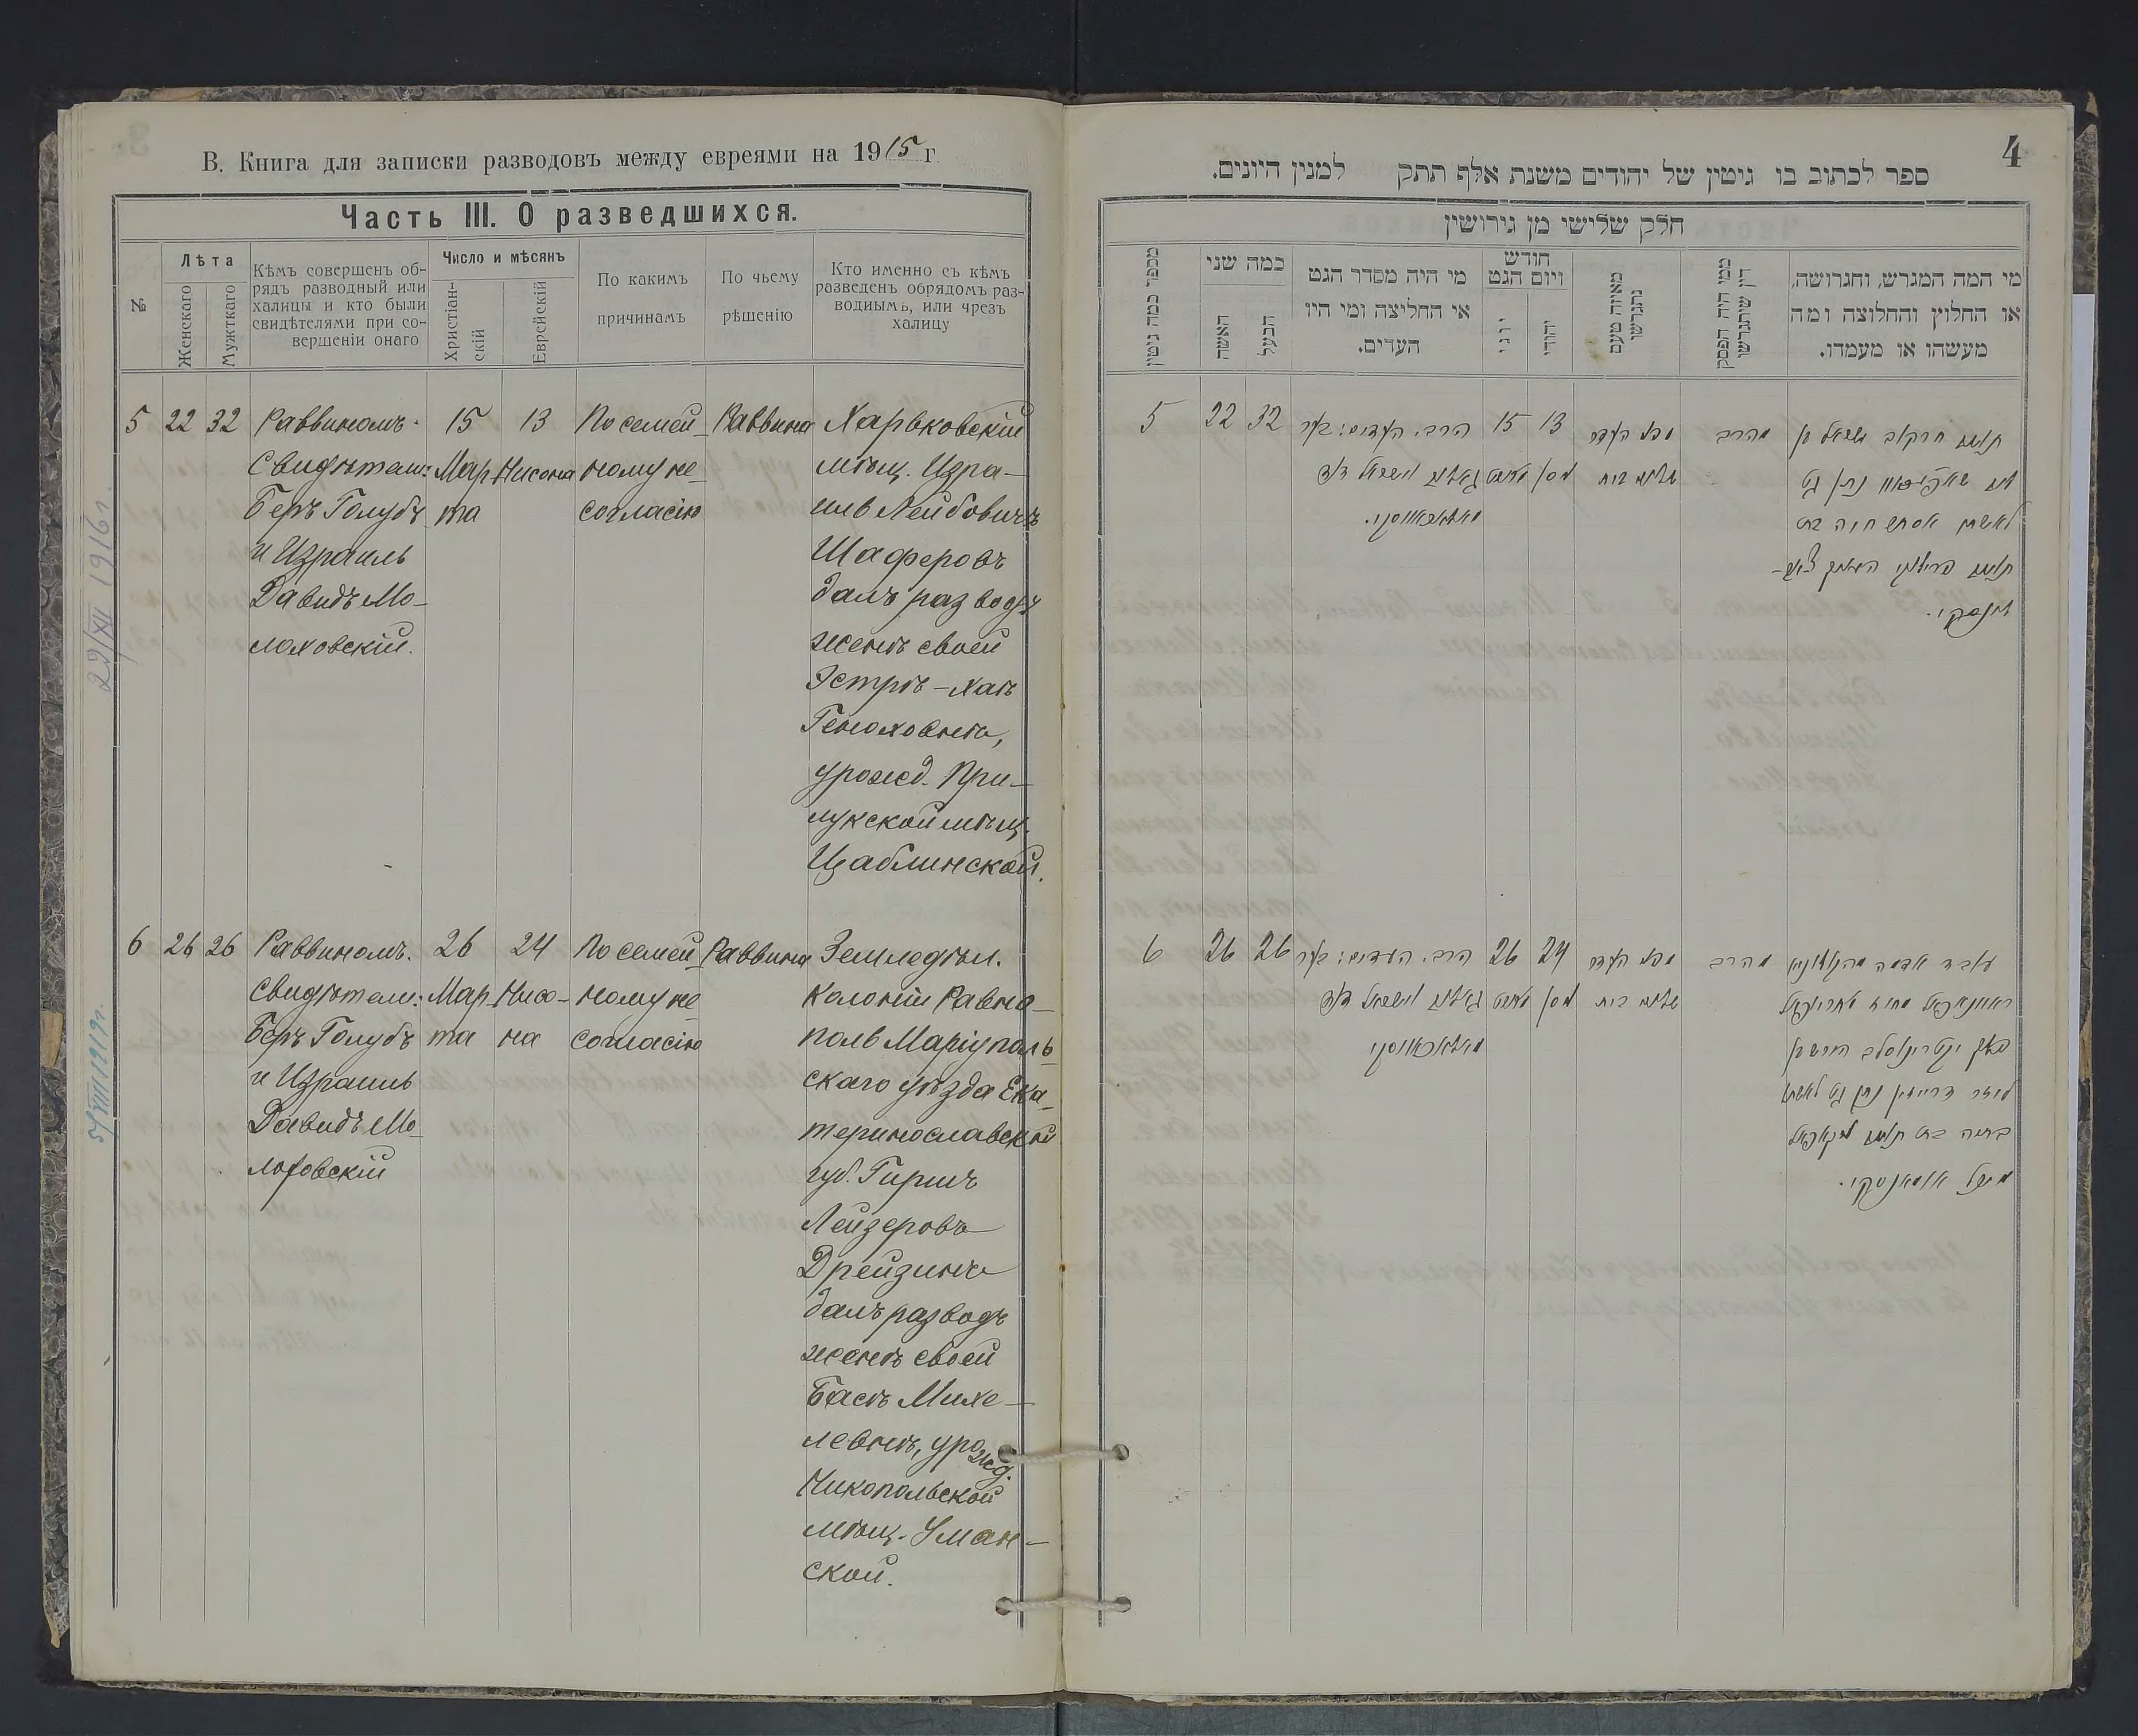 В. Книга для записки разводовъ между евреями на 1915 г.
Часть III. О разведшихся.
№
Лѣта
Женскаго
Мужткаго
Кѣмъ совершенъ об-
рядъ разводный или
халицы и кто были
свидѣтелями при со-
вершеніи онаго
Число и мѣсянъ
Христіан-
скій
Еврейскій
По какимъ
причинамъ
По чьему
рѣшенію
Кто именно съ кѣмъ
разведенъ обрядомъ раз-
воднымъ, или чрезъ
халицу
5 22 32
Раввиномъ.
Свидѣтели:
Беръ Голубъ
и Израиль
Давидъ Мо-
лоховскій.
15
Мар-
та
13
Нисона
По семей-
ному не-
согласію
Раввина
Харьковскій
мѣщ. Изра-
иль Лейбовичъ
Шаферовъ
далъ разводъ
женѣ своей
Эстрѣ-Хаѣ
Геноховнѣ,
урожд. При-
лукской мѣщ.
Цаблинской.
6 26 26
Раввиномъ.
Свидѣтели:
Беръ Голубъ
и Израиль
Давидъ Мо-
лоховскій
26
Мар-
та
24
Нисо-
на
По семей-
ному не
согласію
Раввина
Земледѣл.
колоніи Равно-
поль Маріуполь-
скаго уѣзда Ека-
теринославской
губ. Гиршъ
Лейзеровъ
Дрейзинъ
далъ разводъ
женѣ своей
Басѣ Михе-
левнѣ, урожд.
Никопольской
мѣщ. Уман-
ской.
22/XII 1916 г.
5/VIII 1919 г.
4
ספר לכתוב בו גיטין של יהודים משנת אלף תתק למנין היונים.
חלק שלישי מן גירושין
מספר כמה גיטין
כמה שני
האשה
הבעל
מי היה מסדר הגט
או החליצה ומי היו
העדים.
חודש
ויום הגט
יוני
יהודי
מאיזה טעם
נתגרשו
ממי היה הפסק
דין שיתגרשו
מי המה המגרש, והגרושה,
או החלוץ והחלוצה ומה
מעשהו או מעמדו.
5 22 32
הרב. העדים: בער
גאלוב וישראל דוד
מאלאכאווסקי.
15 13
מארט ניסן
מפני העדר
שלום בית
מהרב
לאשתו אסתר חיה בת
6 26 26
הרב. העדים: בער
גאלוב וישראל דוד
מאלאכאווסקי
26 24
מארט ניסן
מפני העדר
שלום בית
מהרב
עובד אדמה מהקאלאניע
לייזר דרייזין נתן גט לאשתו
מיכל אומאנסקי.